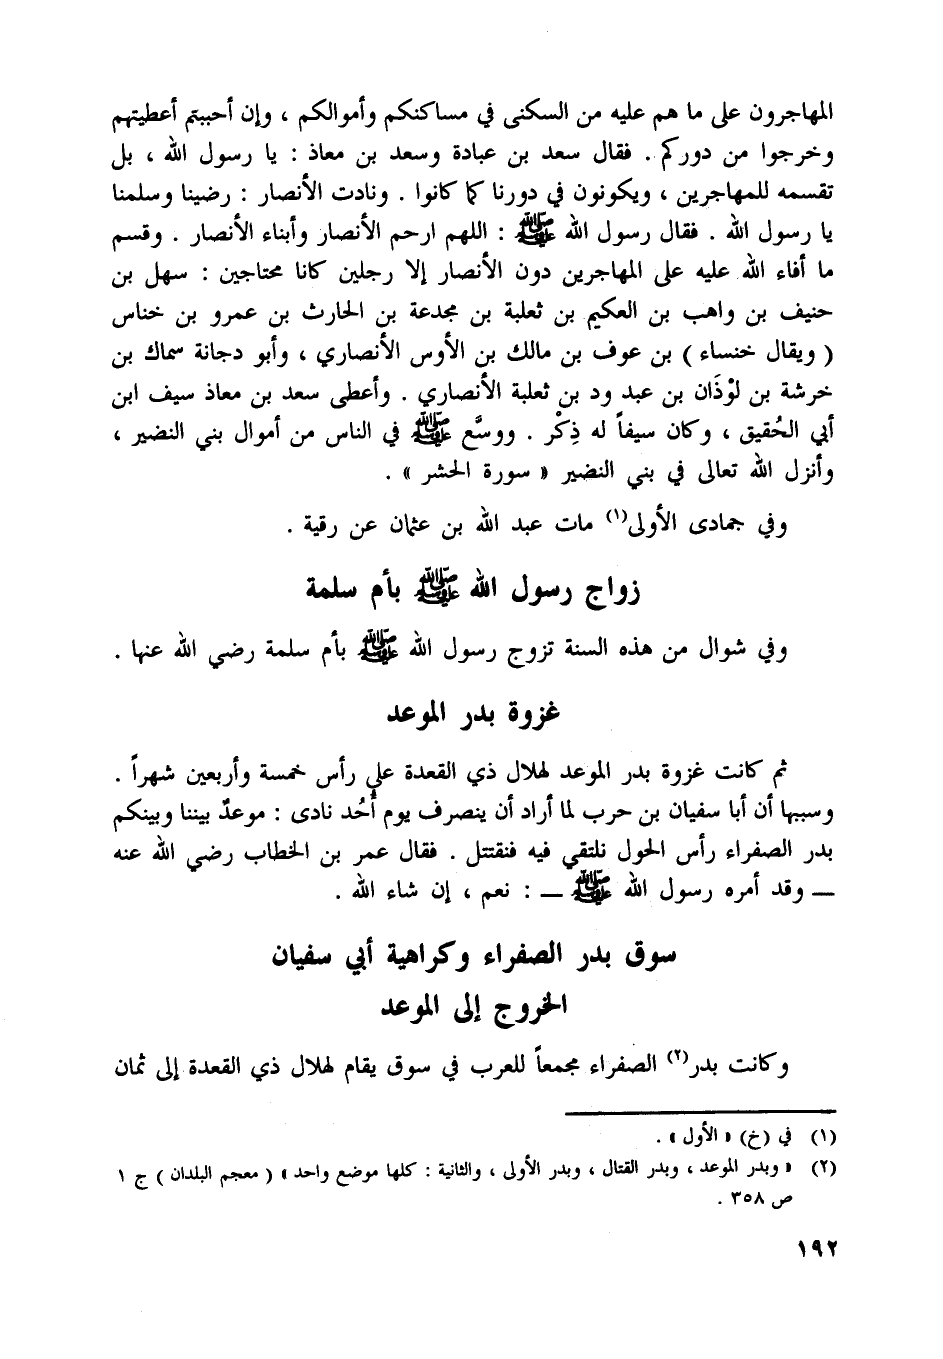 المهاجرون على ما هم عليه من السكنى في مساكنكم وأموالكم ، وإن أحببتم أعطيتهم
وخرجوا من دوركم . فقال سعد بن عبادة وسعد بن معاذ : يا رسول الله ، بل
تقسمه للمهاجرين ، ويكونون في دورنا كما كانوا . ونادت الأنصار : رضينا وسلمنا
يا رسول الله . فقال رسول الله ﷺ : اللهم ارحم الأنصار وأبناء الأنصار . وقسم
ما أفاء الله عليه على المهاجرين دون الأنصار إلا رجلين كانا محتاجين : سهل بن
حنيف بن واهب بن العكيم بن ثعلبة بن مجدعة بن الحارث بن عمرو بن خناس
( ويقال خنساء ) بن عوف بن مالك بن الأوس الأنصاري ، وأبو دجانة سماك بن
خرشة بن لوْذَان بن عبد ود بن ثعلبة الأنصاري . وأعطى سعد بن معاذ سيف ابن
أبي الحُقيق ، وكان سيفاً له ذِكْر . ووسَّع ﷺ في الناس من أموال بني النضير ،
وأنزل الله تعالى في بني النضير « سورة الحشر » .
وفي جمادى الأولى(١) مات عبد الله بن عثمان عن رقية .
زواج رسول الله ﷺ بأم سلمة
وفي شوال من هذه السنة تزوج رسول الله ﷺ بأم سلمة رضي الله عنها .
غزوة بدر الموعد
ثم كانت غزوة بدر الموعد لهلال ذي القعدة على رأس خمسة وأربعين شهراً .
وسببها أن أبا سفيان بن حرب لما أراد أن ينصرف يوم أُحُد نادى : موعدٌ بيننا وبينكم
بدر الصفراء رأس الحول نلتقي فيه فنقتتل . فقال عمر بن الخطاب رضي الله عنه
ــ وقد أمره رسول الله ﷺ ــ : نعم ، إن شاء الله .
سوق بدر الصفراء وكراهية أبي سفيان
الخروج إلى الموعد
وكانت بدر(٢) الصفراء مجمعاً للعرب في سوق يقام لهلال ذي القعدة إلى ثمان
(١) في (خ) « الأول » .
(٢) « وبدر الموعد ، وبدر القتال ، وبدر الأولى ، والثانية : كلها موضع واحد » ( معجم البلدان ) ج ١
ص ٣٥٨ .
١٩٢